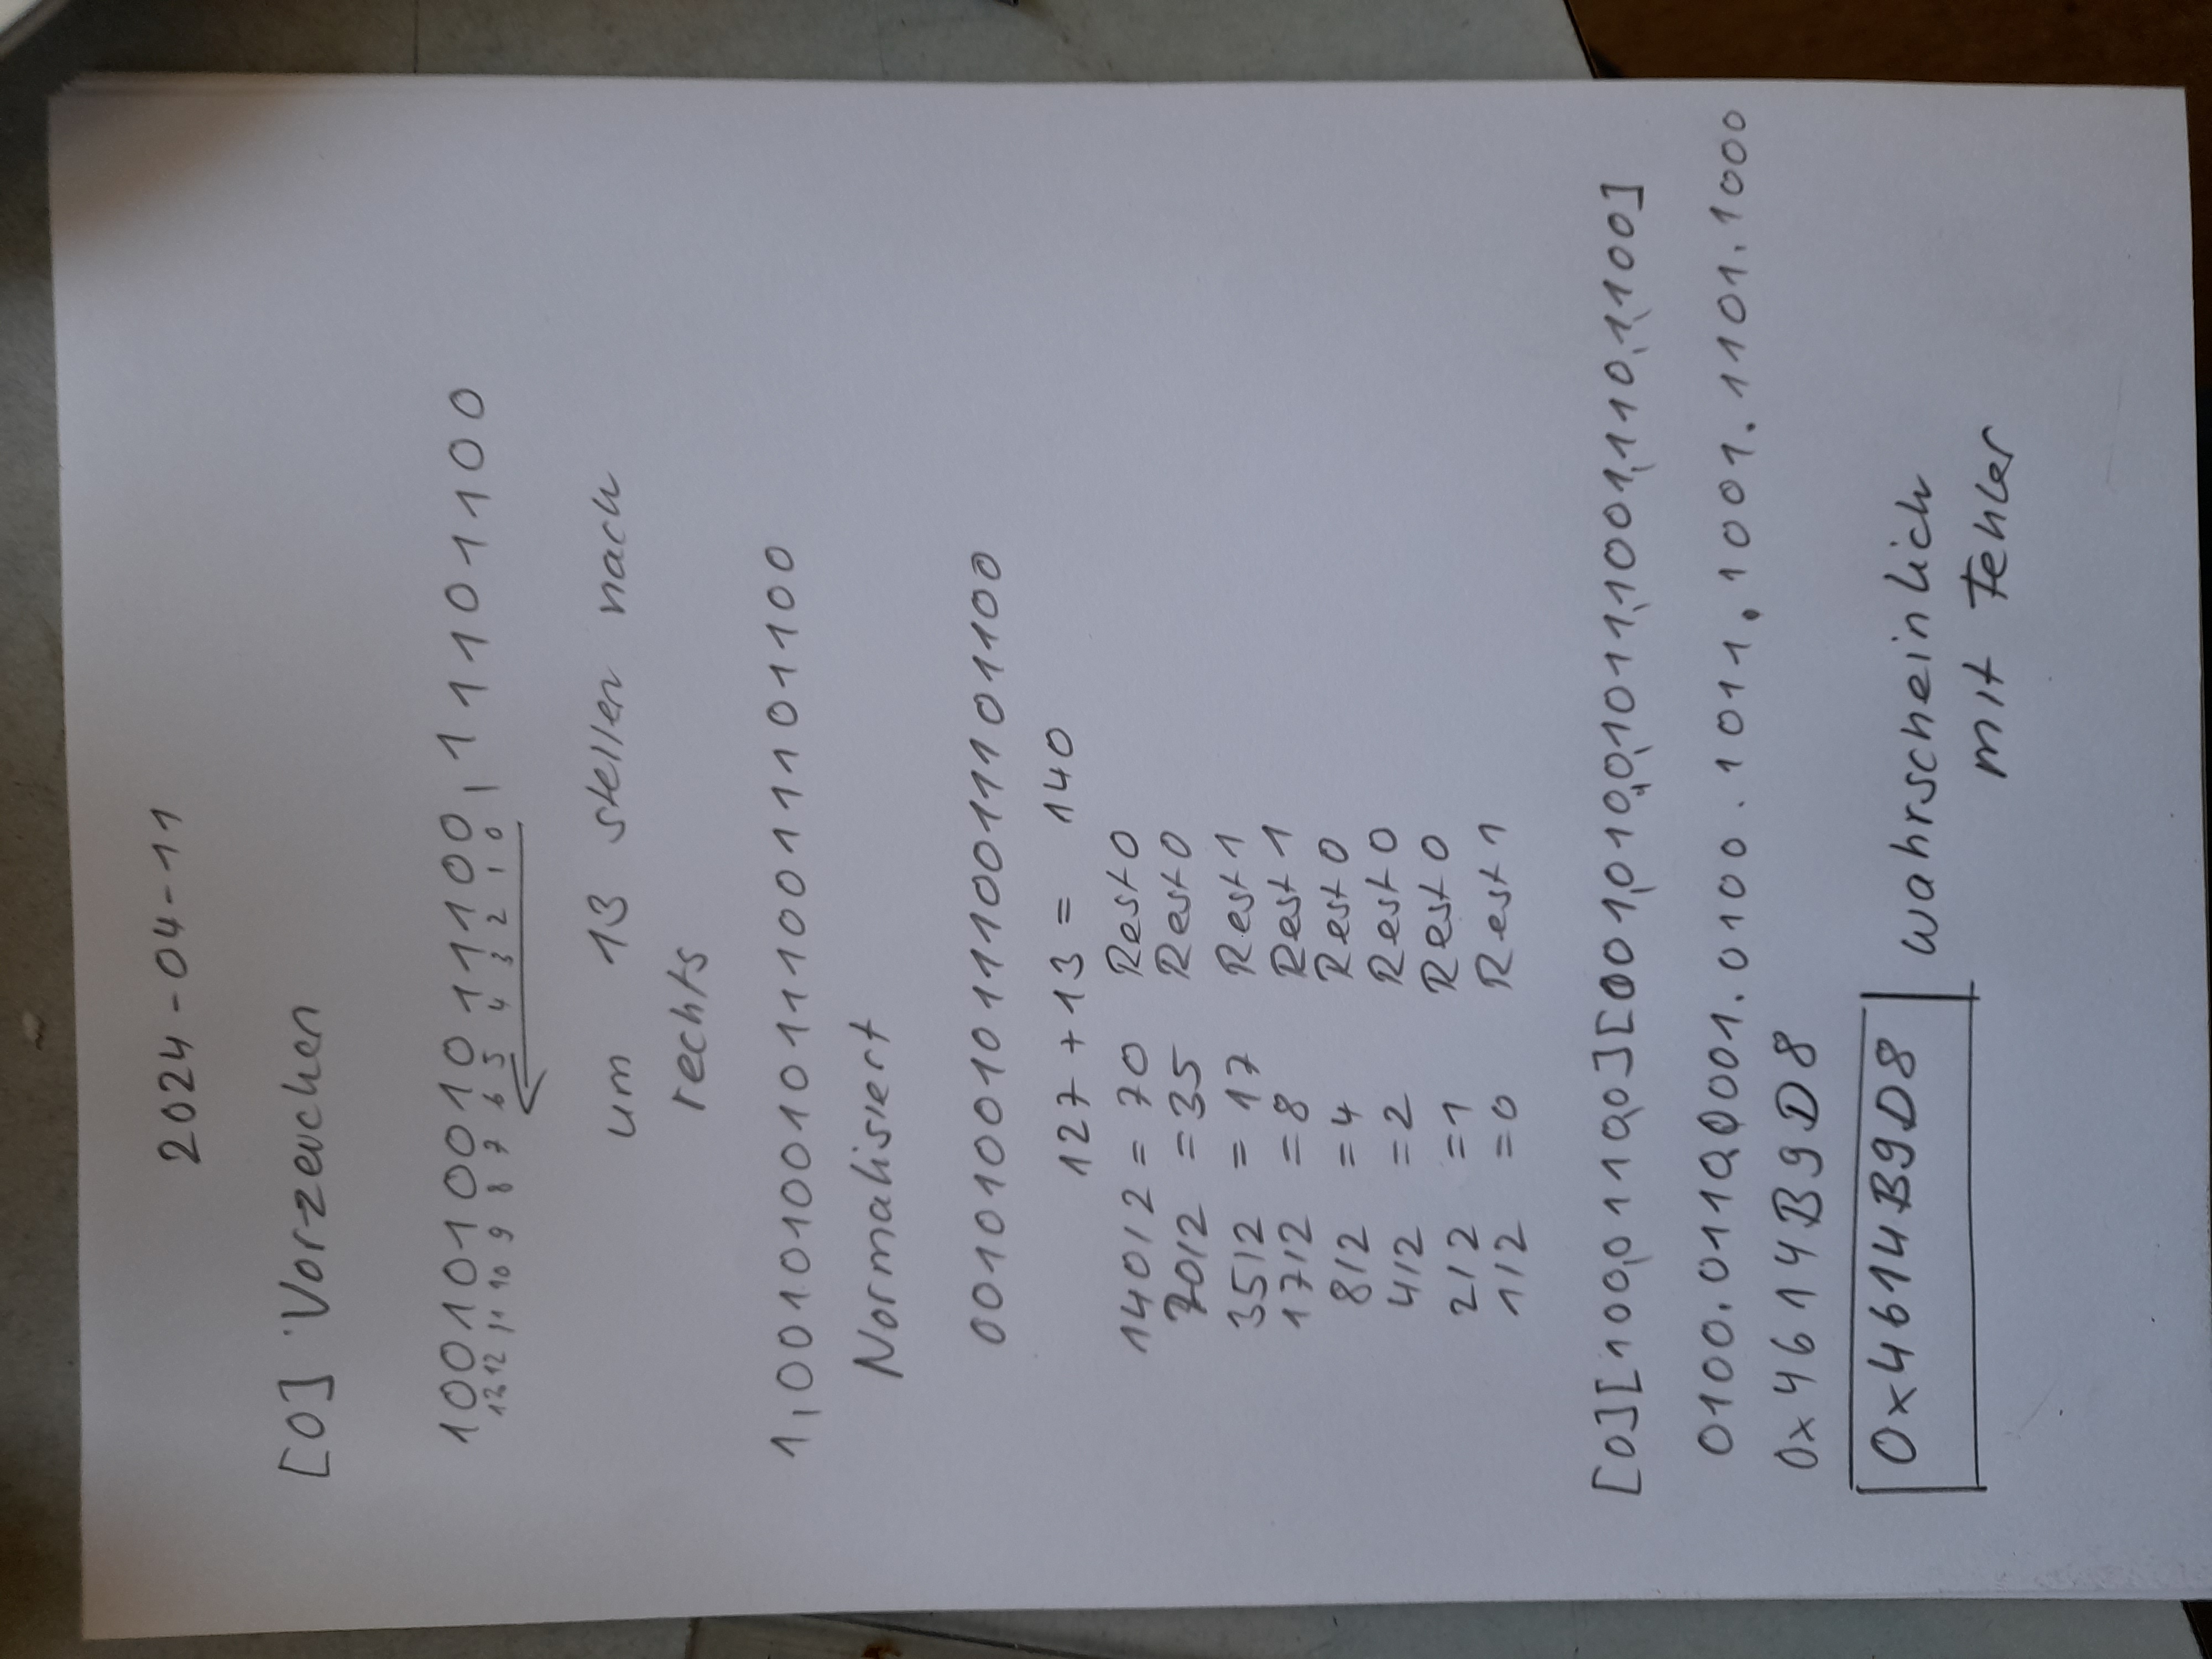 2024-04-11
[0] Vorzeuchen
100101001011100,11101100
13 12 11 10 9 8 7 6 5 4 3 2 1 0
um 13 stellen nach
rechts
1,0010100101110011101100
Normalisiert
0010100101110011101100
127+13= 140
140/2=70 Rest 0
70/2 =35 Rest 0
35/2 =17 Rest 1
17/2 =8 Rest 1
8/2 =4 Rest 0
4/2 =2 Rest 0
2/2 =1 Rest 0
1/2 =0 Rest 1
[0][100,0110,0][001,0100,1011,1001,1101,100]
0100.0110.0001.0100.1011.1001.1101.1000
0x4614B9D8
0x4614B9D8 wahrscheinlich
mit Fehler